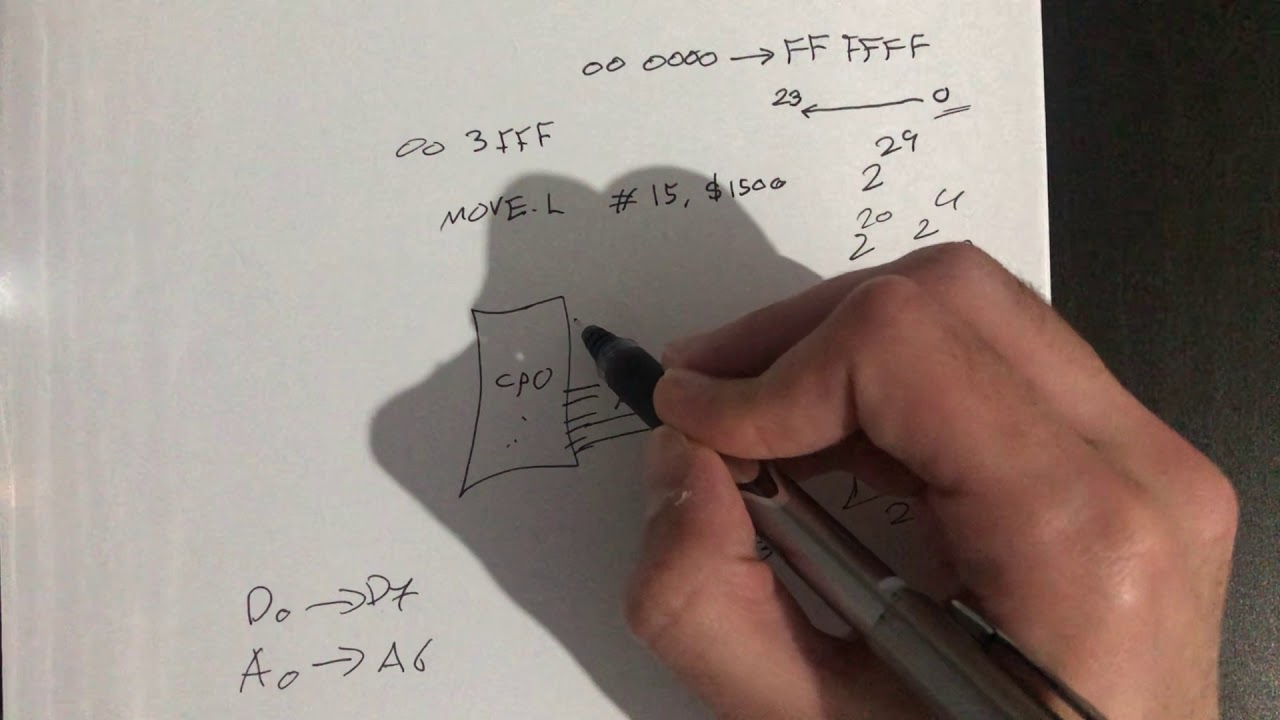 00 0000 → FF FFFF
23 ← 0
00 3FFF
2 29
MOVE.L #15, $1500
2 20 2 4
CPU
2
D0 → D7
A0 → A6